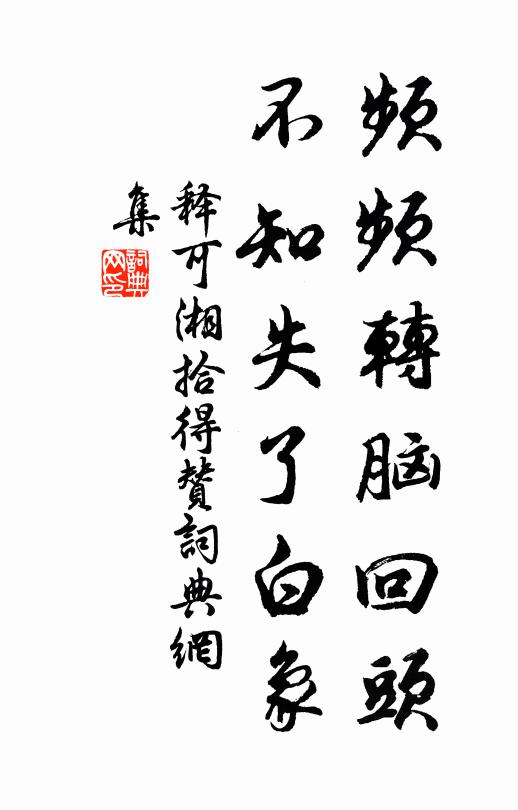 頻頻轉脑回頭
不知失了白象
释可湘拾得贊詞典網
集
詞典网印